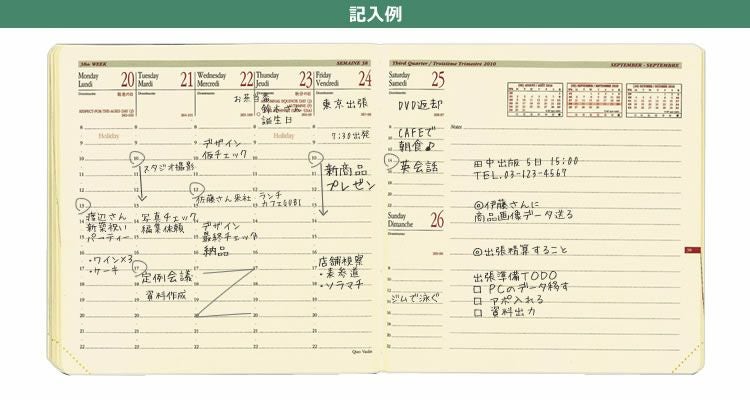 記入例
38th WEEK
SEMAINE 38
Third Quarter / Troisième Trimestre 2010
SEPTEMBER - SEPTEMBRE
Monday
Lundi
20
Dominante
RESPECT-FOR-THE-AGED DAY (J)
263-102
8
Holiday
13
渡辺さん
新築祝い
パーティー
・ワイン×3
・ケーキ
Tuesday
Mardi
21
Dominante
264-101
10
スタジオ撮影
写真チェック
編集依頼
17
定例会議
資料作成
Wednesday
Mercredi
22
Dominante
デザイン
仮チェック
12
佐藤さん来社
デザイン
最終チェック
納品
Thursday
Jeudi
23
Dominante
お弁当
誕生日
Holiday
ランチ
Friday
Vendredi
24
Dominante
東京出張
7:30出発
10
新商品
プレゼン
店舗視察
・表参道
・ソラマチ
Saturday
Samedi
25
Dominante
DVD返却
CAFEで
朝食♪
英会話
Sunday
Dimanche
26
Dominante
ジムで泳ぐ
Notes
田中出版 5日 15:00
TEL.03-123-4567
◎伊藤さんに
商品画像データ送る
◎出張精算すること
出張準備TODO
□ PCのデータ移す
□ アポ入れる
□ 資料出力
Quo Vadis